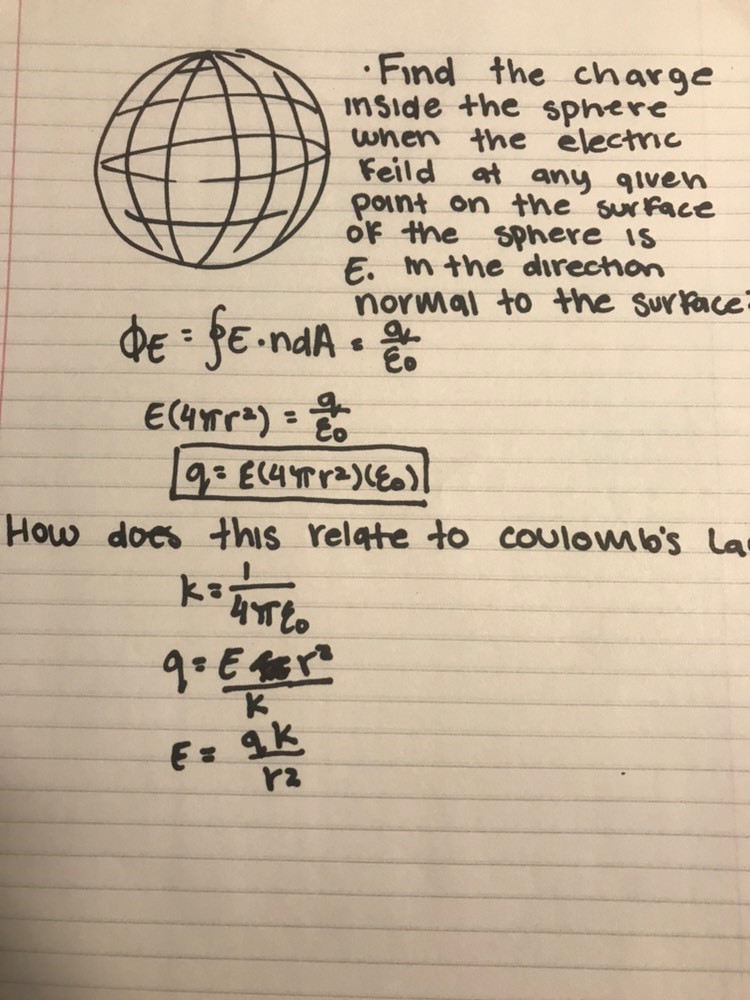 ·Find the charge
inside the sphere
when the electric
Feild at any given
point on the surface
of the sphere is
E. in the direction
normal to the surface?
ΦE = ∮E·ndA = q/ε0
E(4πr²) = q/ε0
q = E(4πr²)(ε0)
How does this relate to coulomb's La
k = 1/4πε0
q = E r²/k
E = qk/r²